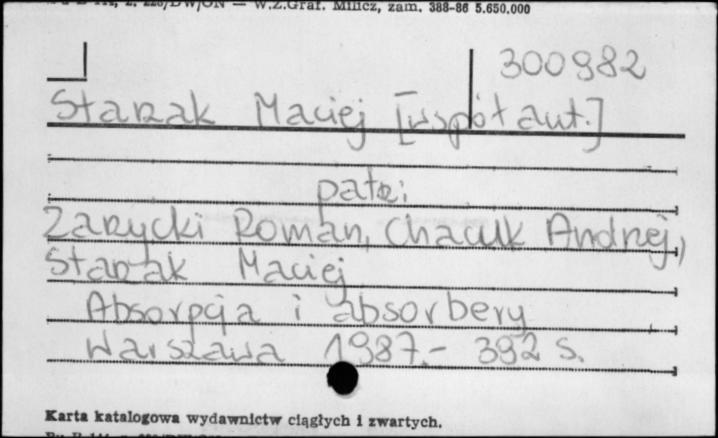 W.Z.Graf. Milicz, zam. 388-86 5.650.000
300982
Starzak Maciej [współaut.]
patrz:
Zarzycki Roman, Chacuk Andrzej,
Starzak Maciej
Absorpcja i absorbery
Warszawa 1987.- 392 s.
Karta katalogowa wydawnictw ciągłych i zwartych.